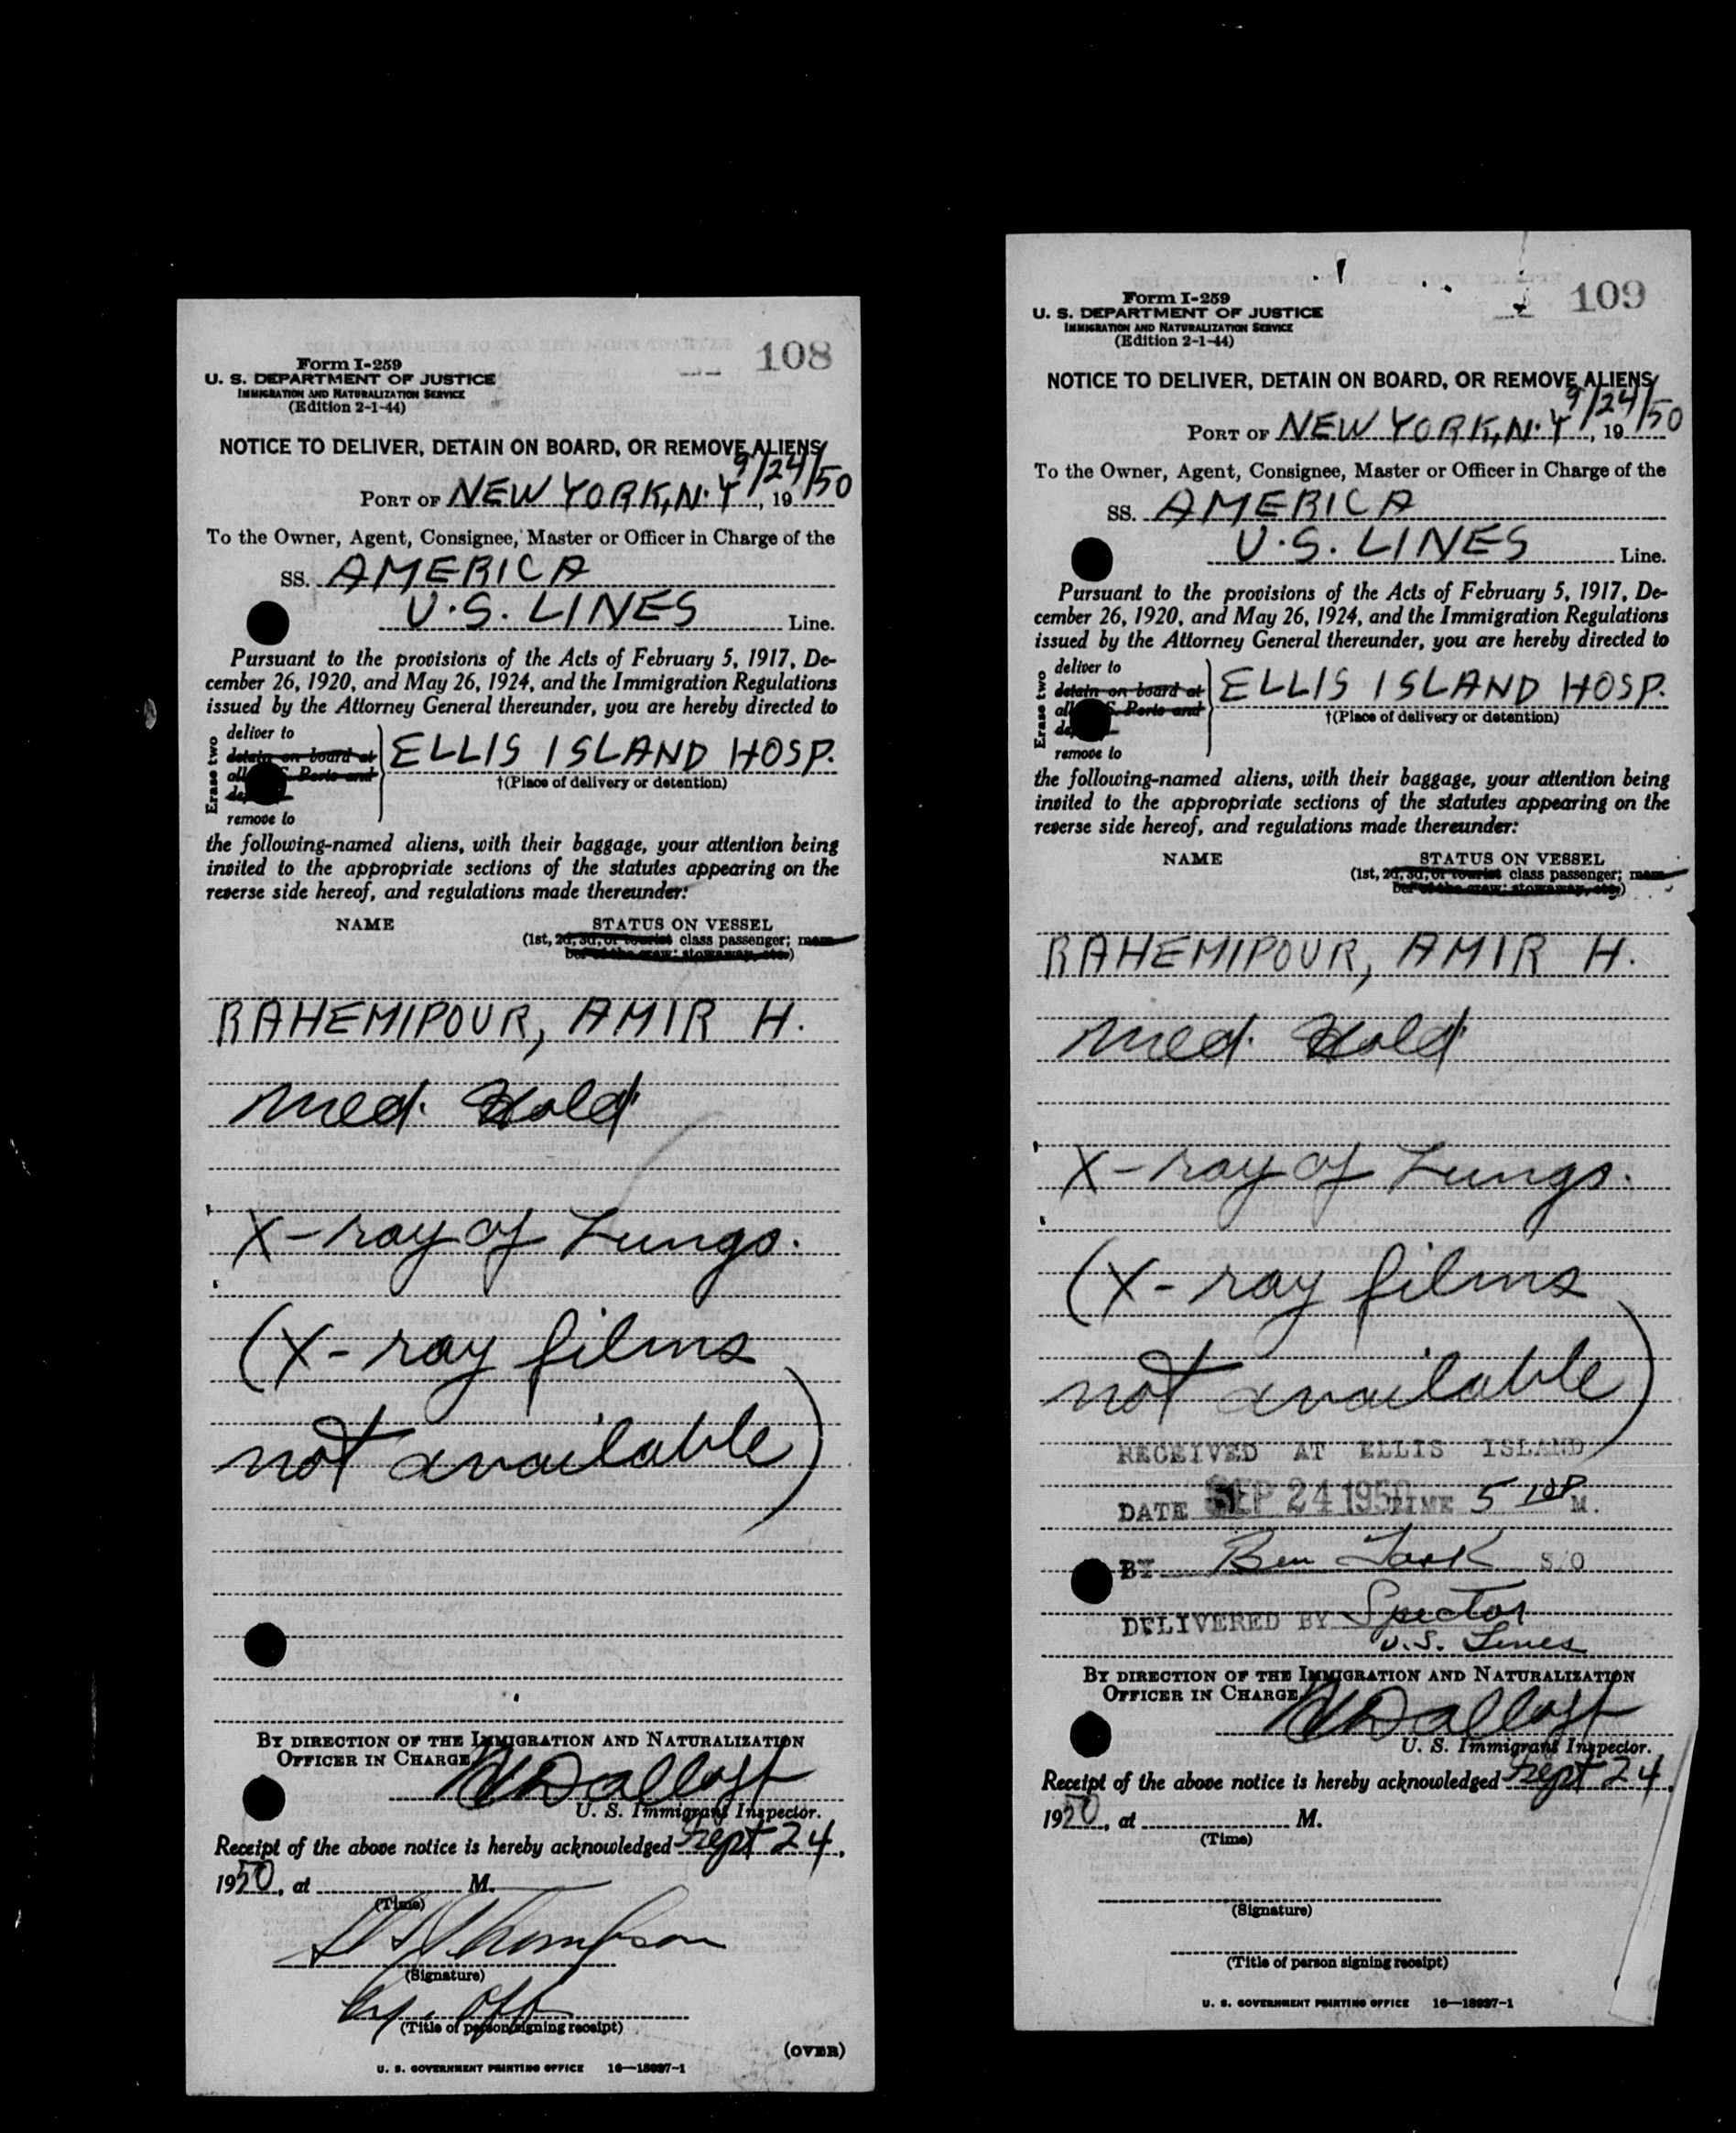 108
Form I-259
U. S. DEPARTMENT OF JUSTICE
IMMIGRATION AND NATURALIZATION SERVICE
(Edition 2-1-44)
NOTICE TO DELIVER, DETAIN ON BOARD, OR REMOVE ALIENS
9/24/50
PORT OF NEW YORK, N.Y., 19
To the Owner, Agent, Consignee, Master or Officer in Charge of the
SS. AMERICA
U.S. LINES Line.
Pursuant to the provisions of the Acts of February 5, 1917, De-
cember 26, 1920, and May 26, 1924, and the Immigration Regulations
issued by the Attorney General thereunder, you are hereby directed to
Erase two
deliver to
detain on board at
all S. Ports and
remove to
ELLIS ISLAND HOSP.
†(Place of delivery or detention)
the following-named aliens, with their baggage, your attention being
invited to the appropriate sections of the statutes appearing on the
reverse side hereof, and regulations made thereunder:
NAME STATUS ON VESSEL
(1st, 2d, 3d, or tourist class passenger; mem-
ber of the crew; stowaway, etc.)
RAHEMIPOUR, AMIR H.
Med. Hold
X-ray of Lungs.
(X-ray films
not available)
BY DIRECTION OF THE IMMIGRATION AND NATURALIZATION
OFFICER IN CHARGE
U. S. Immigrant Inspector.
Receipt of the above notice is hereby acknowledged Sept 24,
1950, at M.
(Time)
Thompson
(Signature)
(Title of person signing receipt)
(OVER)
U. S. GOVERNMENT PRINTING OFFICE 16—18937-1
109
Form I-259
U. S. DEPARTMENT OF JUSTICE
IMMIGRATION AND NATURALIZATION SERVICE
(Edition 2-1-44)
NOTICE TO DELIVER, DETAIN ON BOARD, OR REMOVE ALIENS
9/24/50
PORT OF NEW YORK, N.Y., 19
To the Owner, Agent, Consignee, Master or Officer in Charge of the
SS. AMERICA
U.S. LINES Line.
Pursuant to the provisions of the Acts of February 5, 1917, De-
cember 26, 1920, and May 26, 1924, and the Immigration Regulations
issued by the Attorney General thereunder, you are hereby directed to
Erase two
deliver to
detain on board at
all S. Ports and
remove to
ELLIS ISLAND HOSP.
†(Place of delivery or detention)
the following-named aliens, with their baggage, your attention being
invited to the appropriate sections of the statutes appearing on the
reverse side hereof, and regulations made thereunder:
NAME STATUS ON VESSEL
(1st, 2d, 3d, or tourist class passenger; mem-
ber of the crew; stowaway, etc.)
RAHEMIPOUR, AMIR H.
Med. Hold
X-ray of Lungs.
(X-ray films
not available)
RECEIVED AT ELLIS ISLAND
DATE SEP 24 1950 TIME 5 10P M.
BY Ben S/O
DELIVERED BY Spector
U.S. Lines
BY DIRECTION OF THE IMMIGRATION AND NATURALIZATION
OFFICER IN CHARGE
U. S. Immigrant Inspector.
Receipt of the above notice is hereby acknowledged Sept 24,
1950, at M.
(Time)
(Signature)
(Title of person signing receipt)
U. S. GOVERNMENT PRINTING OFFICE 16—18937-1